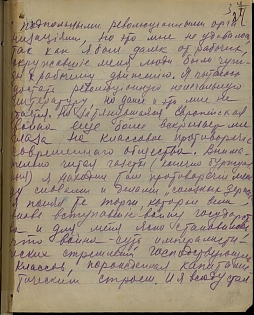 подпольными революционными орга
низациями. Но это мне не удавалось
так как я был далек от рабочих,
окружавшие меня люди были чуж-
ды рабочему движению. Я пытался
достать революционную нелегальную
литературу, но даже и это мне не
Европейская
война еще более вскрыла мне
глаза на классовые противоречия
современного общества. Внима-
тельно читая газеты
я находил там противоречия меж
ду словами и делами
я понял те торги которые вели
вступая в войну государст
ва и для меня ясно становилось
что война – суть империалисти-
ческих стремлений господствующих
классов, порожденная капитали
стическим строем. И я всюду стал